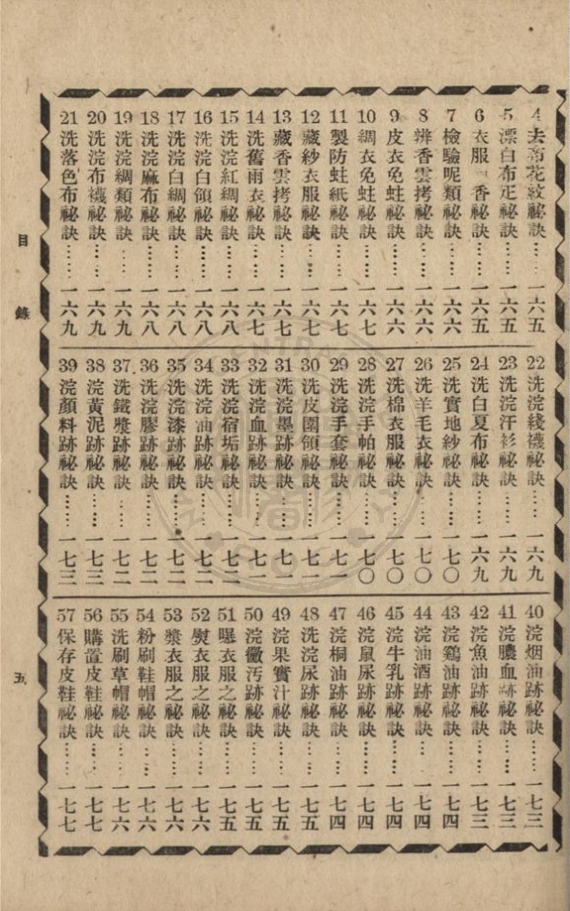 4 去 花紋祕訣……一六五
5 漂白布疋祕訣……一六五
6 衣服 香祕訣……一六五
7 檢驗呢類祕訣……一六六
8 辨香雲拷祕訣……一六六
9 皮衣免蛀祕訣……一六六
10 綢衣免蛀祕訣……一六七
11 製防蛀紙祕訣……一六七
12 藏紗衣服祕訣……一六七
13 藏香雲拷祕訣……一六七
14 洗舊雨衣祕訣……一六七
15 洗浣紅綢祕訣……一六八
16 洗浣白領祕訣……一六八
17 洗浣白綢祕訣……一六八
18 洗浣麻布祕訣……一六八
19 洗浣綢類祕訣……一六九
20 洗浣布襪祕訣……一六九
21 洗落色布祕訣……一六九
22 洗浣綫襪祕訣……一六九
23 洗浣汗衫祕訣……一六九
24 洗白夏布祕訣……一六九
25 洗實地紗祕訣……一七〇
26 洗羊毛衣祕訣……一七〇
27 洗棉衣服祕訣……一七〇
28 洗浣手帕祕訣……一七〇
29 洗浣手套祕訣……一七一
30 洗皮圍領祕訣……一七一
31 洗浣墨跡祕訣……一七一
32 洗浣血跡祕訣……一七一
33 洗浣宿垢祕訣……一七二
34 洗浣油跡祕訣……一七二
35 洗浣漆跡祕訣……一七二
36 洗浣膠跡祕訣……一七二
37 洗鐵漿跡祕訣……一七二
38 浣黃泥跡祕訣……一七三
39 浣顏料跡祕訣……一七三
40 浣烟油跡祕訣……一七三
41 浣膿血跡祕訣……一七三
42 浣魚油跡祕訣……一七三
43 浣鷄油跡祕訣……一七四
44 浣油酒跡祕訣……一七四
45 浣牛乳跡祕訣……一七四
46 浣鼠尿跡祕訣……一七四
47 浣桐油跡祕訣……一七四
48 洗浣尿跡祕訣……一七五
49 浣果實汁祕訣……一七五
50 浣黴污跡祕訣……一七五
51 曝衣服之祕訣……一七五
52 熨衣服之祕訣……一七六
53 漿衣服之祕訣……一七六
54 粉刷鞋帽祕訣……一七六
55 洗刷草帽祕訣……一七六
56 購置皮鞋祕訣……一七七
57 保存皮鞋祕訣……一七七
目錄
五